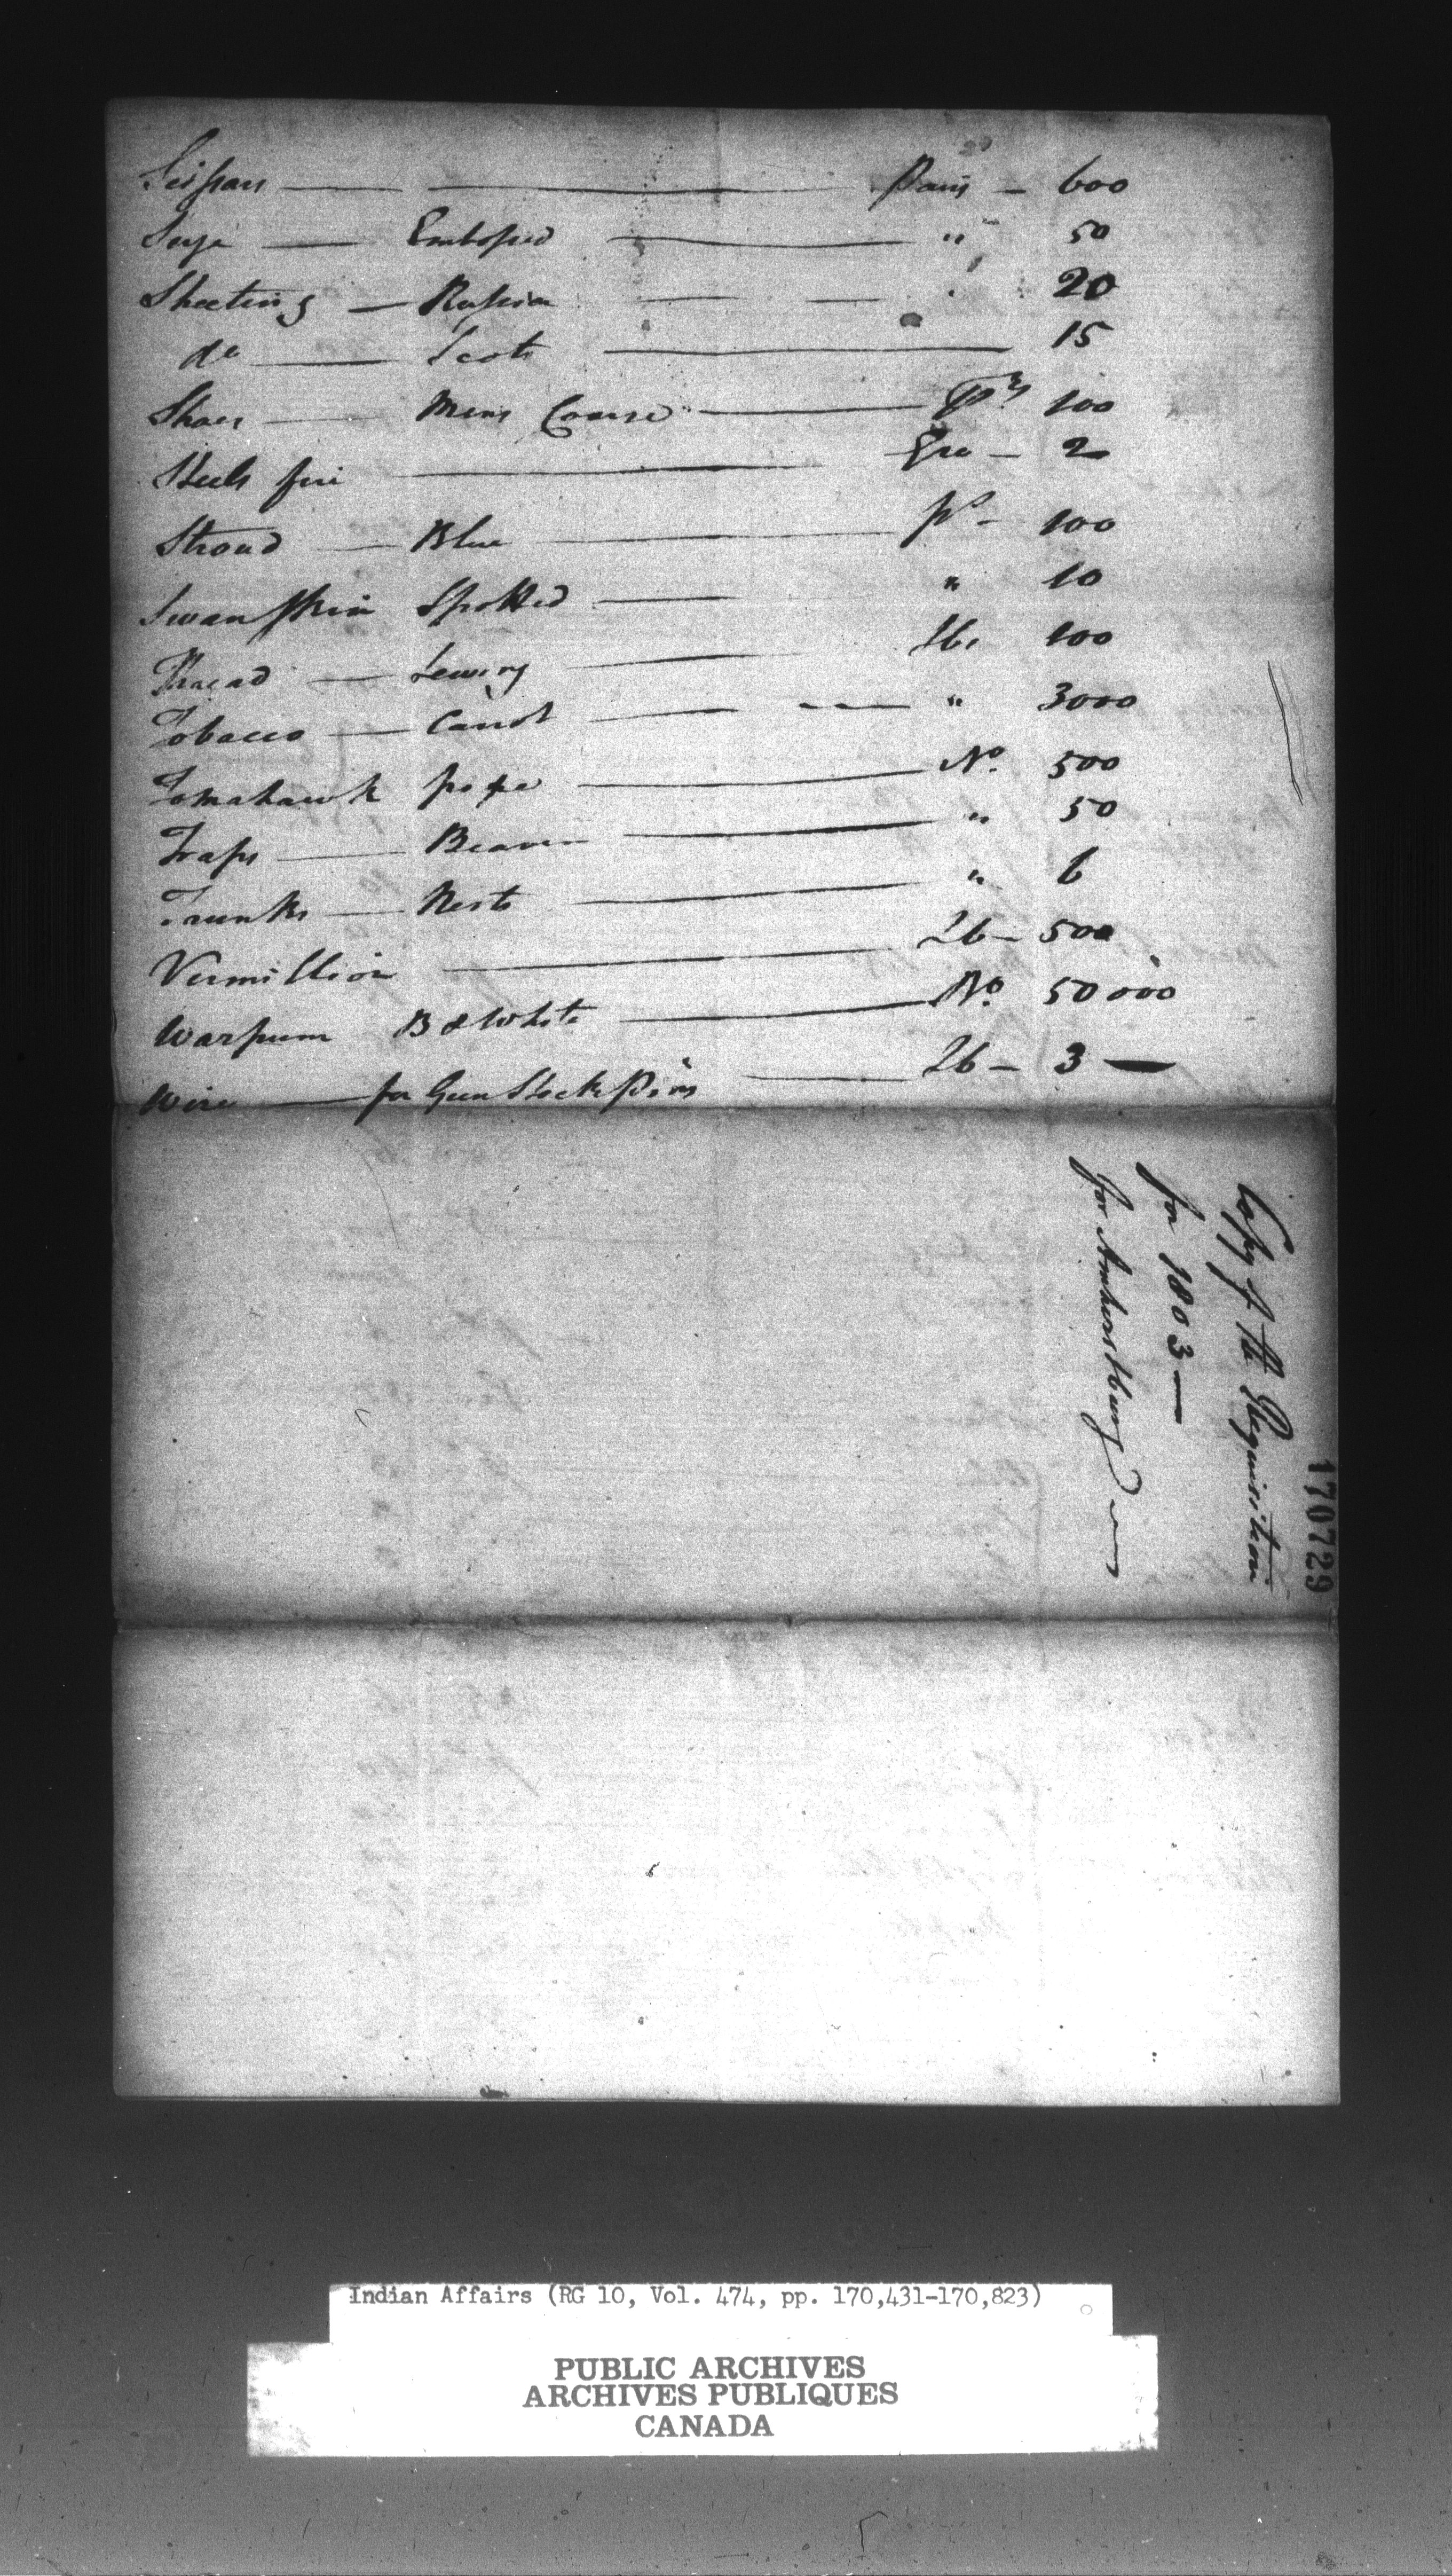 Scissars — — Pairs — 600
Serge — Embossed — " 50
Sheeting — Russia — — 20
do — Scots — 15
Shoes — Mens Coarse — Prs 100
Steels fire — Gro — 2
Stroud — Blue — ps — 100
Swanskin Spotted — " 10
Thread — Sewing — lbs 100
Tobacco — Carrot — — — " 3000
Tomahawk pipe — No. 500
Traps — Beaver — " 50
Trunks — Nests — " 6
Vermillion — lb — 500
Warpum B & White — No. 50000
Wire — for Gun Stock Pins — lb — 3 —
Copy of the Requisition
for 1803 —
for Amherstburg —
170729
Indian Affairs (RG 10, Vol. 474, pp. 170,431-170,823)
PUBLIC ARCHIVES
ARCHIVES PUBLIQUES
CANADA